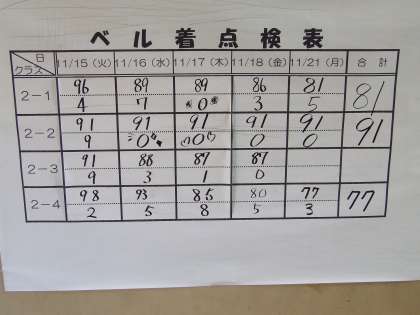 ベル着点検表
日 クラス 11/15(火) 11/16(水) 11/17(木) 11/18(金) 11/21(月) 合計
2-1 96 89 89 86 81 81
4 7 0 3 5
2-2 91 91 91 91 91 91
9 0 0 0 0
2-3 91 88 87 87
9 3 1 0
2-4 98 93 85 80 77 77
2 5 8 5 3